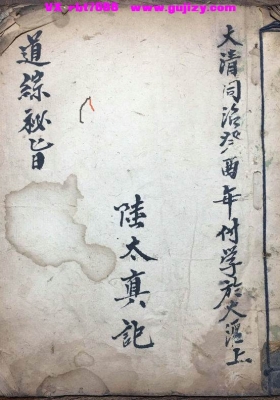 www.gujizy.com
大清同治癸酉年付学於大滬上
陸太真記
道綜秘旨